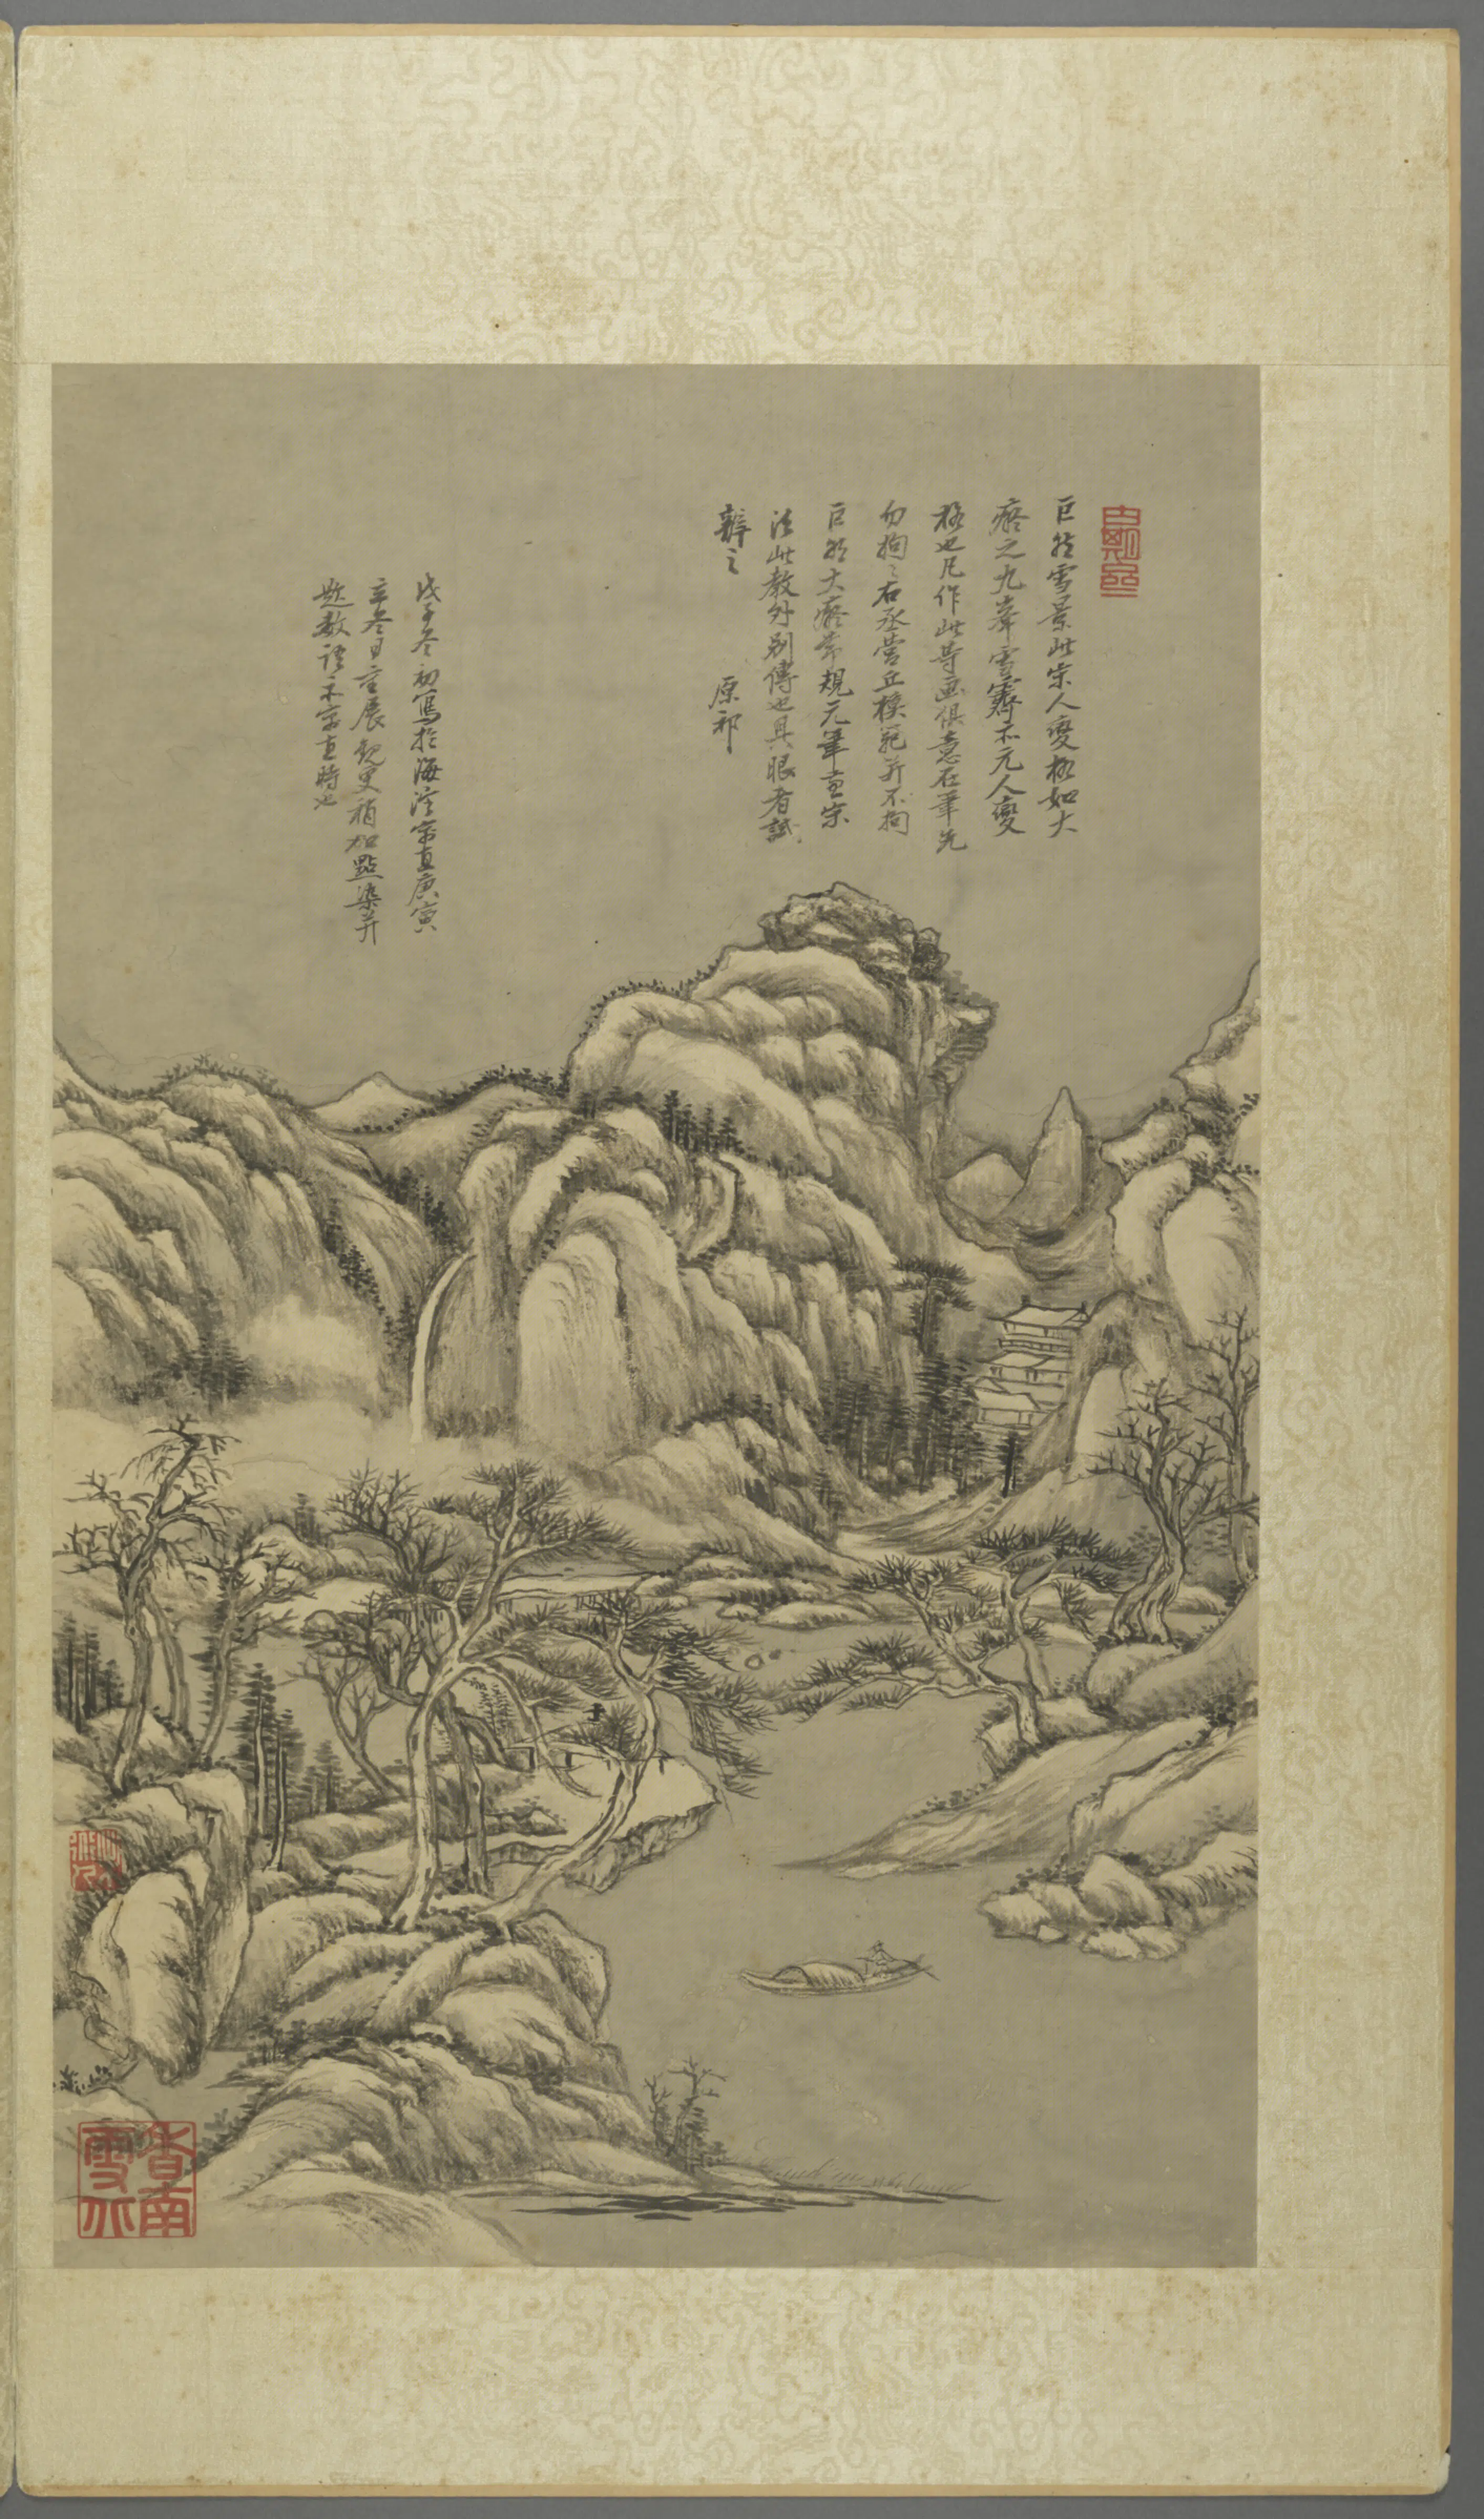 巨然雪景此宋人變極如大
癡之九峯雪霽亦元人變
極也凡作此等画俱意在筆先
勿拘〻右丞營丘模範并不拘
巨然大癡常規元筆兼宋
法此教外別傳也具眼者試
辨之 原祁
戊子冬初寓於海淀寓直庚寅
辛冬日
展観更稍加點染并
題數語于寓直時也
香南
雪北